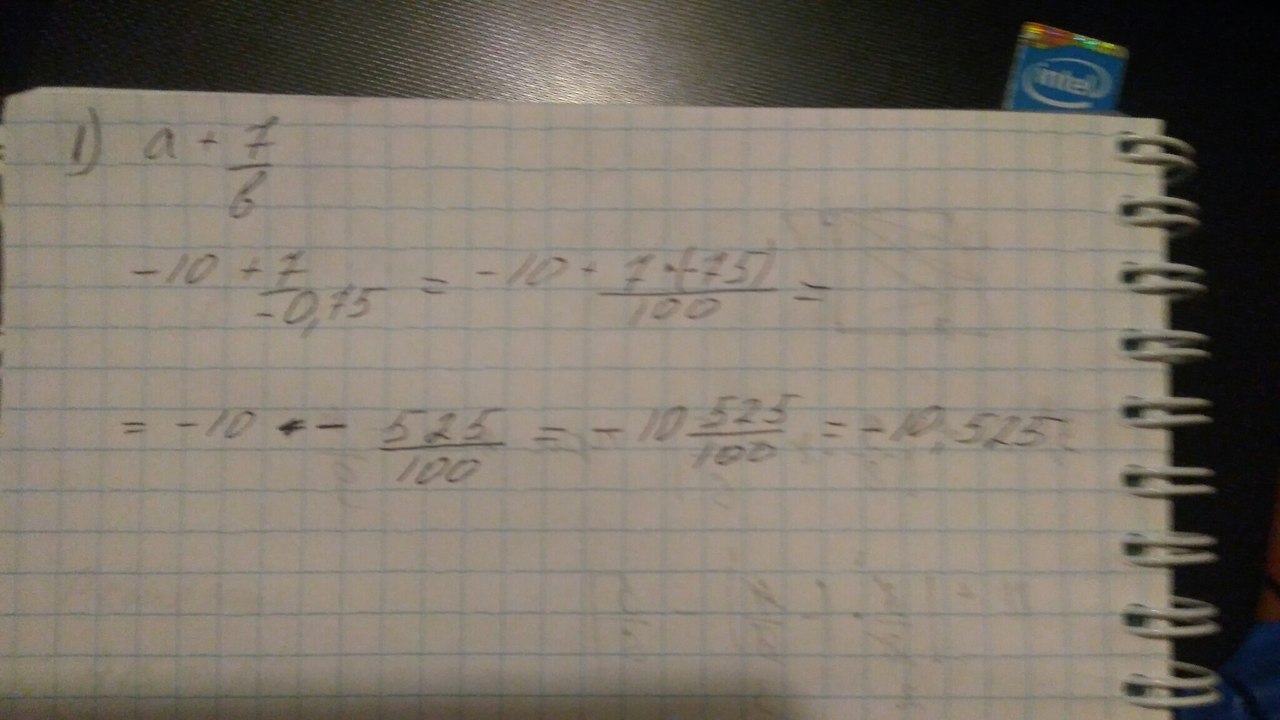 intel
1) a + 7/в
-10 + 7/-0,75 = -10 + 7·(-75)/100 =
= -10 - 525/100 = -10 525/100 = -10,525